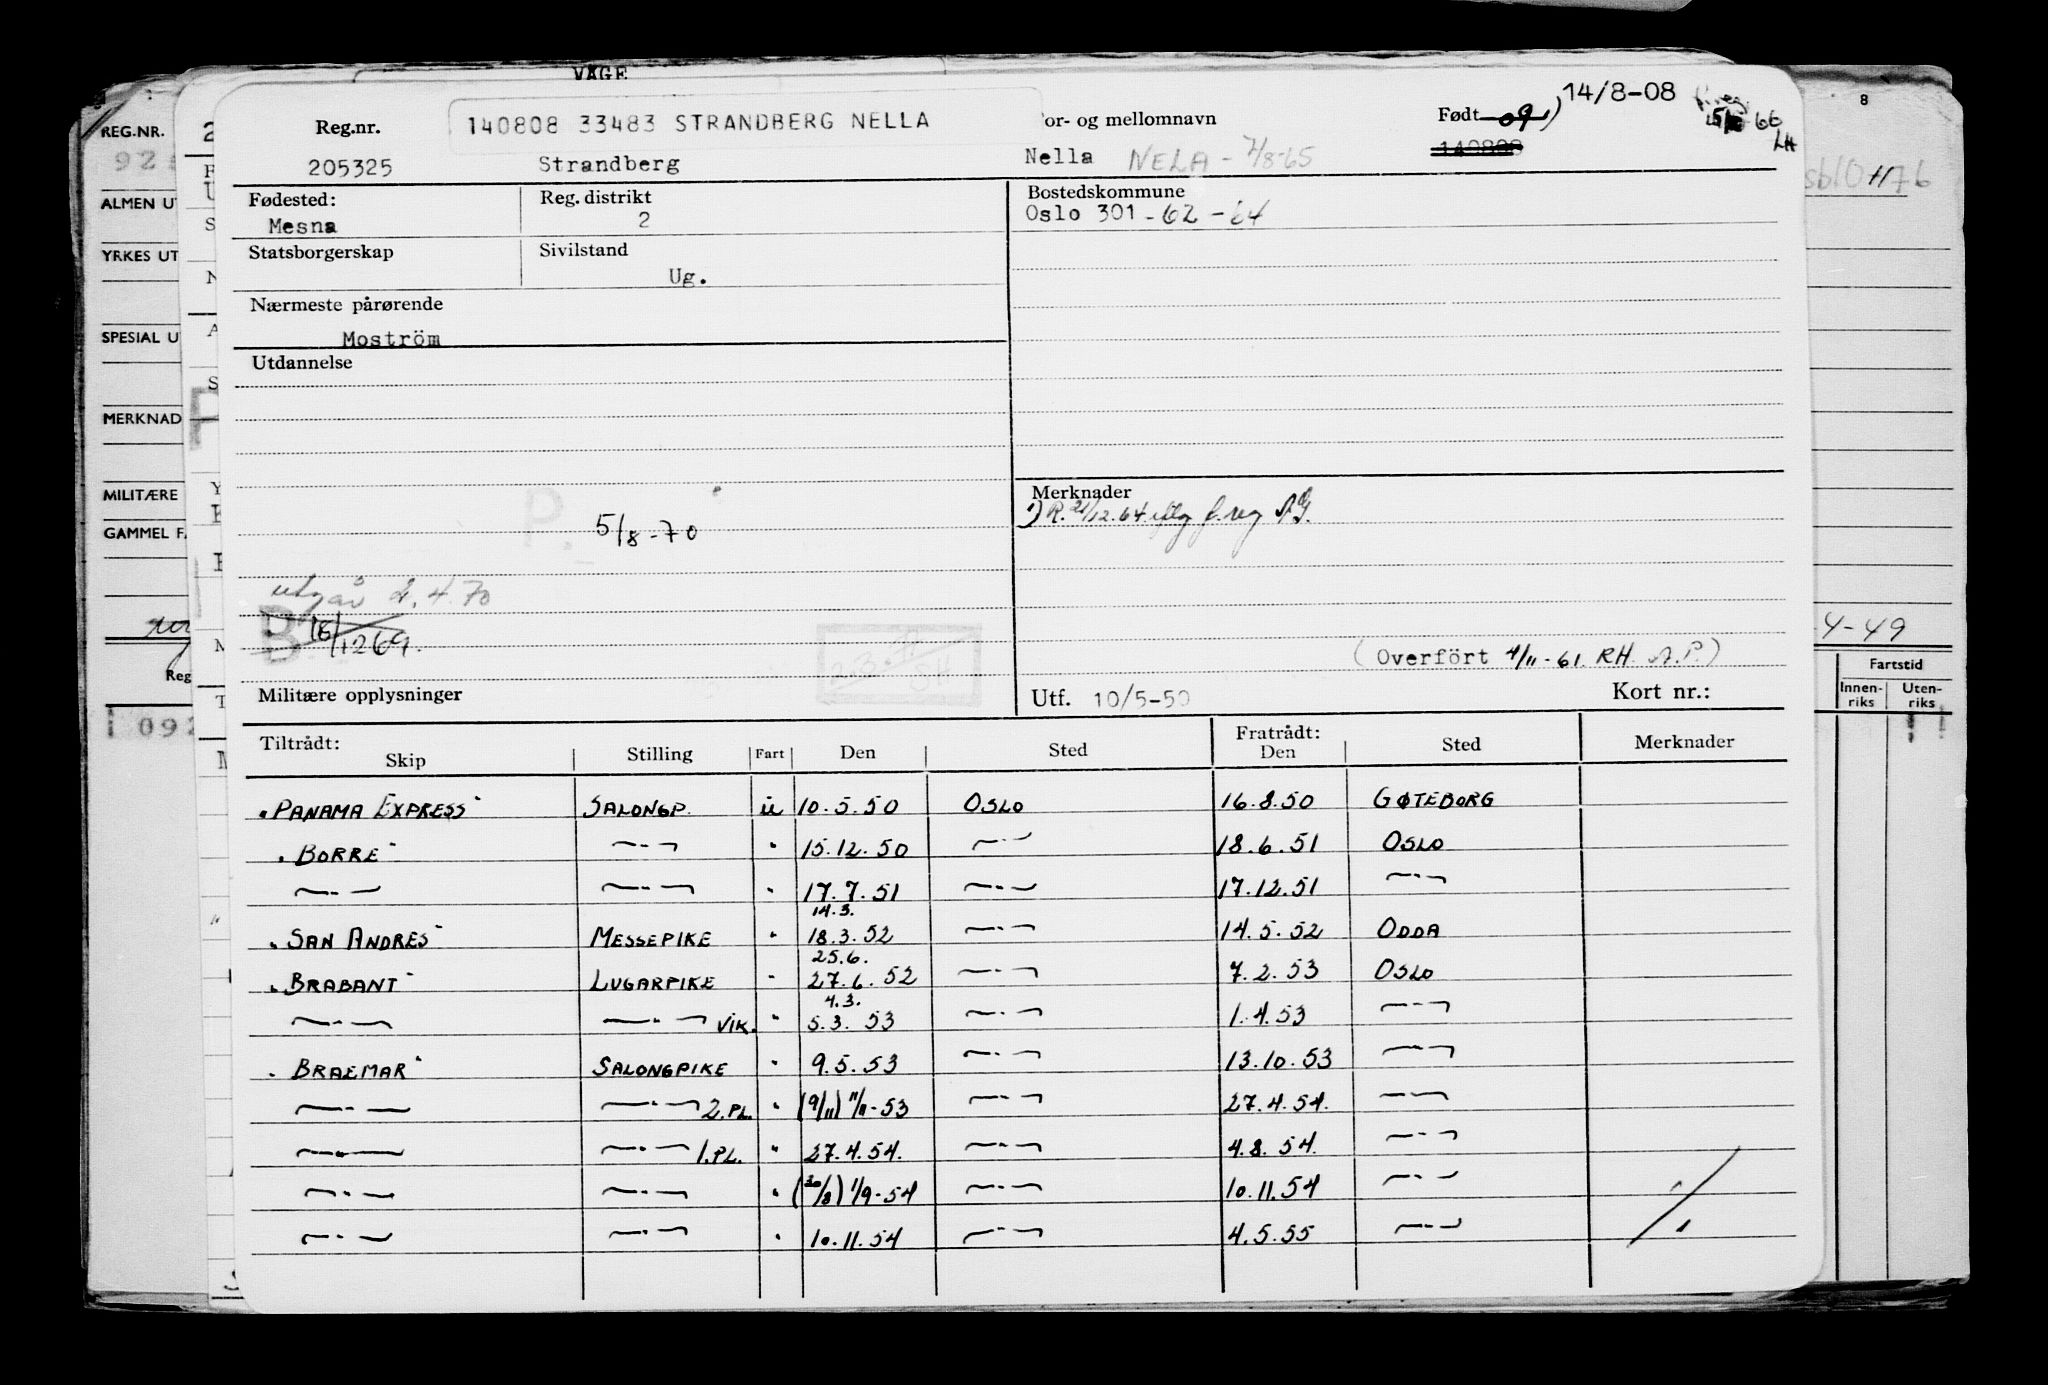 VÅGE
Reg.nr. 140808 33483 STRANDBERG NELLA For- og mellomnavn Født 09 1) 14/8-08 66 LH
205325 Strandberg Nella NELA - 7/8-65 140808
Fødested: Reg. distrikt Bostedskommune
Mesna 2 Oslo 301 - 62 - 64
Statsborgerskap Sivilstand
Ug.
Nærmeste pårørende
Moström
Utdannelse
Merknader
1) R. 21/12.64 A.G.
5/8-70
P.
utgår 2.4.70
B 16/1269.
(Overfört 4/11-61. RH. A.P.)
Militære opplysninger Utf. 10/5-50 Kort nr.:
Tiltrådt: Skip Stilling Fart Den Sted Fratrådt: Den Sted Merknader
"PANAMA EXPRESS" SALONGP. U 10.5.50 OSLO 16.8.50 GØTEBORG
"BORRE" —"— " 15.12.50 —"— 18.6.51 OSLO
—"— —"— " 17.7.51 —"— 17.12.51 —"—
14.3.
"SAN ANDRES" MESSEPIKE " 18.3.52 —"— 14.5.52 ODDA
25.6.
"BRABANT" LUGARPIKE " 27.6.52 —"— 7.2.53 OSLO
4.3.
—"— —"— VIK. " 5.3.53 —"— 1.4.53 —"—
"BRAEMAR" SALONGPIKE " 9.5.53 —"— 13.10.53 —"—
—"— —"— 2.PL. " (9/11) 11/11-53 —"— 27.4.54. —"—
—"— —"— 1.PL. " 27.4.54. —"— 4.8.54. —"—
—"— —"— " (30/8) 1/9-54 —"— 10.11.54 —"—
—"— —"— " 10.11.54 —"— 4.5.55 —"—
REG.NR.
ALMEN UT
YRKES UT
SPESIAL U
MERKNAD
MILITÆRE
GAMMEL F
Reg
092
8
4-49
Fartstid
Innen-riks Uten-riks